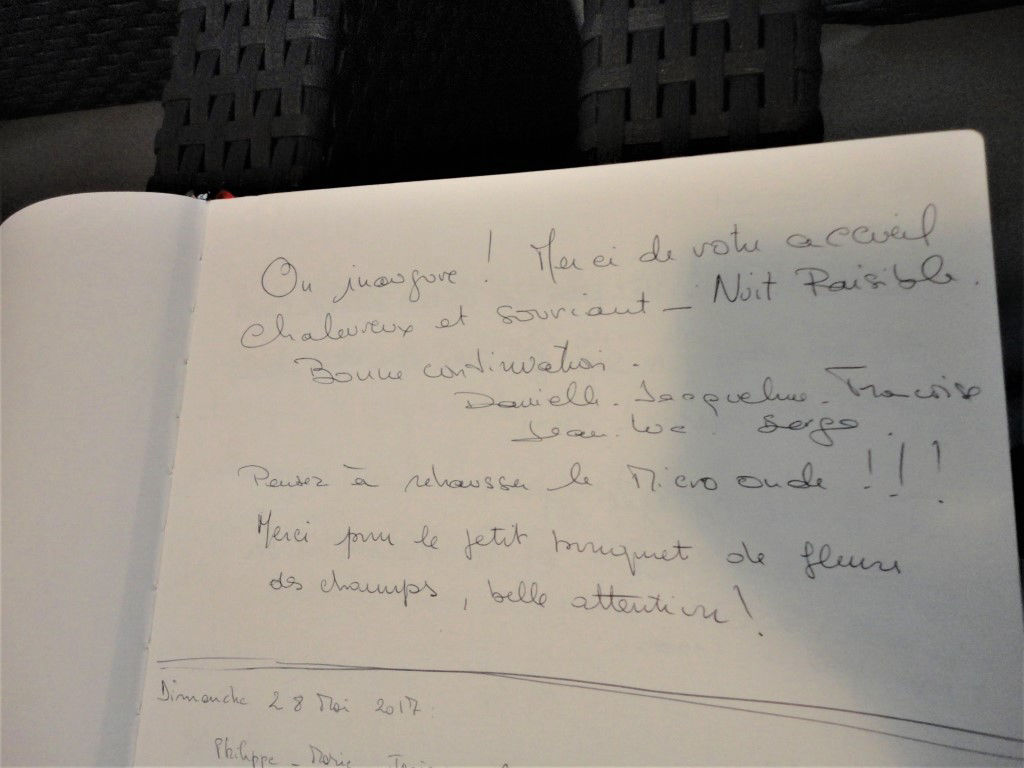 On inaugure ! Merci de votre accueil
chaleureux et souriant - Nuit Paisible.
Bonne continuation.
Danielle. Jacqueline. Francoise
Jean-Luc. Serge.
Pensez à rehausser le Micro onde !!!
Merci pour le petit bouquet de fleurs
des champs, belle attention !
Dimanche 28 Mai 2017.
Philippe - Marie -